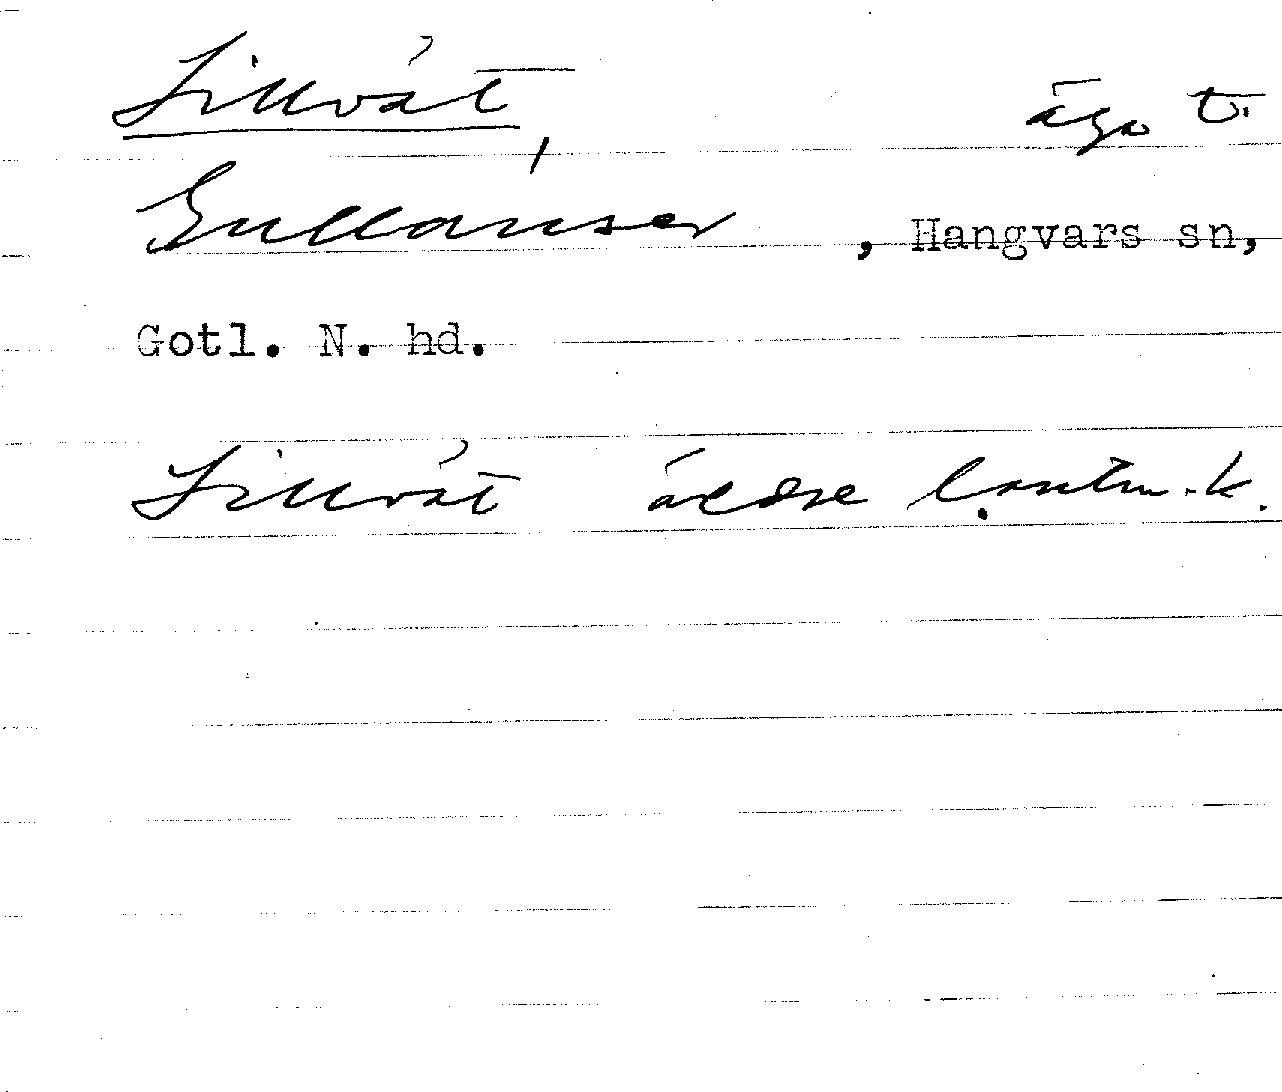 Lillvät, ägo t.
Gullauser, Hangvars sn,
Gotl. N. hd.
Lillvät äldre lantm.k.